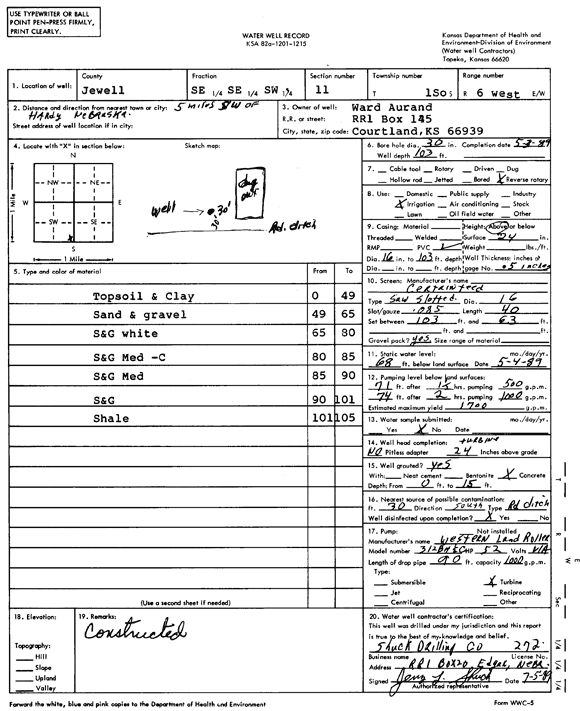 USE TYPEWRITER OR BALL
POINT PEN-PRESS FIRMLY,
PRINT CLEARLY.
WATER WELL RECORD
KSA 82a-1201-1215
Kansas Department of Health and
Environment-Division of Environment
(Water well Contractors)
Topeka, Kansas 66620
1. Location of well:
County
Jewell
Fraction
SE 1/4 SE 1/4 SW 1/4
Section number
11
Township number
T 1So S
Range number
R 6 west E/W
2. Distance and direction from nearest town or city: 5 miles SW OF
HARDY NEBRASKA.
Street address of well location if in city:
3. Owner of well: Ward Aurand
R.R. or street: RR1 Box 145
City, state, zip code: Courtland,KS 66939
4. Locate with "X" in section below:
Sketch map:
N
NW NE
W E
SW SE
X
S
1 Mile
1 Mile
well
30'
dug out
Rd. ditch
6. Bore hole dia. 30 in. Completion date 5-3-89
Well depth 103 ft.
7. Cable tool Rotary Driven Dug
Hollow rod Jetted Bored X Reverse rotary
8. Use: Domestic Public supply Industry
X Irrigation Air conditioning Stock
Lawn Oil field water Other
9. Casing: Material Height: Above or below
Threaded Welded Surface 24 in.
RMP PVC Weight lbs./ft.
Dia. 16 in. to 103 ft. depth Wall Thickness: inches or
Dia. in. to ft. depth gage No. .05 inches
10. Screen: Manufacturer's name
Certainteed
Type Saw Slotted. Dia. 16
Slot/gauze .085 Length 40
Set between 103 ft. and 63 ft.
ft. and ft.
Gravel pack? yes. Size range of material
11. Static water level: mo./day/yr.
68 ft. below land surface Date 5-4-89
12. Pumping level below land surfaces:
71 ft. after 1½ hrs. pumping 500 g.p.m.
74 ft. after 2 hrs. pumping 1000 g.p.m.
Estimated maximum yield 1700 g.p.m.
13. Water sample submitted: mo./day/yr.
Yes X No Date
14. Well head completion: turbine
NO Pitless adapter 24 Inches above grade
15. Well grouted? yes
With: Neat cement Bentonite X Concrete
Depth: From 0 ft. to 15 ft.
16. Nearest source of possible contamination:
ft. 30 Direction South Type Rd ditch
Well disinfected upon completion? X Yes No
17. Pump: Not installed
Manufacturer's name Western Land Roller
Model number HP 52 Volts N/A
Length of drop pipe 90 ft. capacity 1000 g.p.m.
Type:
Submersible X Turbine
Jet Reciprocating
Centrifugal Other
5. Type and color of material From To
Topsoil & Clay 0 49
Sand & gravel 49 65
S&G white 65 80
S&G Med -C 80 85
S&G Med 85 90
S&G 90 101
Shale 101 105
(Use a second sheet if needed)
18. Elevation:
Topography:
Hill
Slope
Upland
Valley
19. Remarks:
Constructed
20. Water well contractor's certification:
This well was drilled under my jurisdiction and this report
is true to the best of my knowledge and belief.
Shuck Drilling Co 272.
Business name License No.
Address RR1 Box20, Edgar, Nebr.
Signed Date 7-5-89
Authorized representative
T
R
E
W
Sec
1/4
1/4
1/4
Forward the white, blue and pink copies to the Department of Health and Environment
Form WWC-5